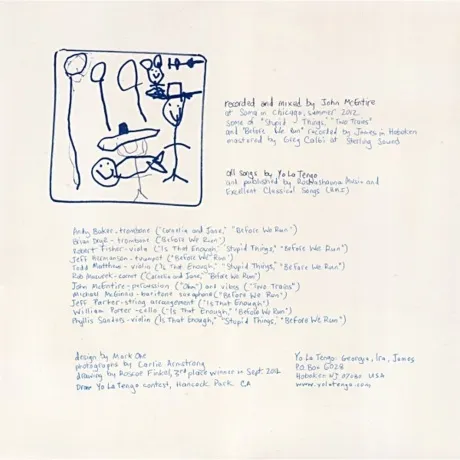 recorded and mixed by John McEntire
at Soma in Chicago, summer 2012
some of "Stupid Things," "Two Trains"
and "Before We Run" recorded by James in Hoboken
mastered by Greg Calbi at Sterling Sound
all songs by Yo La Tengo
and published by Roshashauna Music and
Excellent Classical Songs (BMI)
Andy Baker - trombone ("Cornelia and Jane," "Before We Run")
Brian - trombone ("Before We Run")
Robert Fisher - viola ("Is That Enough," "Stupid Things," "Before We Run")
Jeff - trumpet ("Before We Run")
Todd Matthews - violin ("Is That Enough," "Stupid Things," "Before We Run")
Rob Mazurek - cornet ("Cornelia and Jane," "Before We Run")
John McEntire - percussion ("Ohm") and vibes ("Two Trains")
Michael McGinnis - baritone saxophone ("Before We Run")
Jeff Parker - string arrangement ("Is That Enough")
William Porter - cello ("Is That Enough," "Before We Run")
Phyllis Sanders - violin ("Is That Enough," "Stupid Things," "Before We Run")
design by Mark Ohe
photographs by Carlie Armstrong
drawing by Roscoe Finkel, 3rd place winner in Sept. 2012
Draw Yo La Tengo contest, Hancock Park, CA
Yo La Tengo: Georgia, Ira, James
P.O. Box 6028
Hoboken NJ 07030 USA
www.yolatengo.com